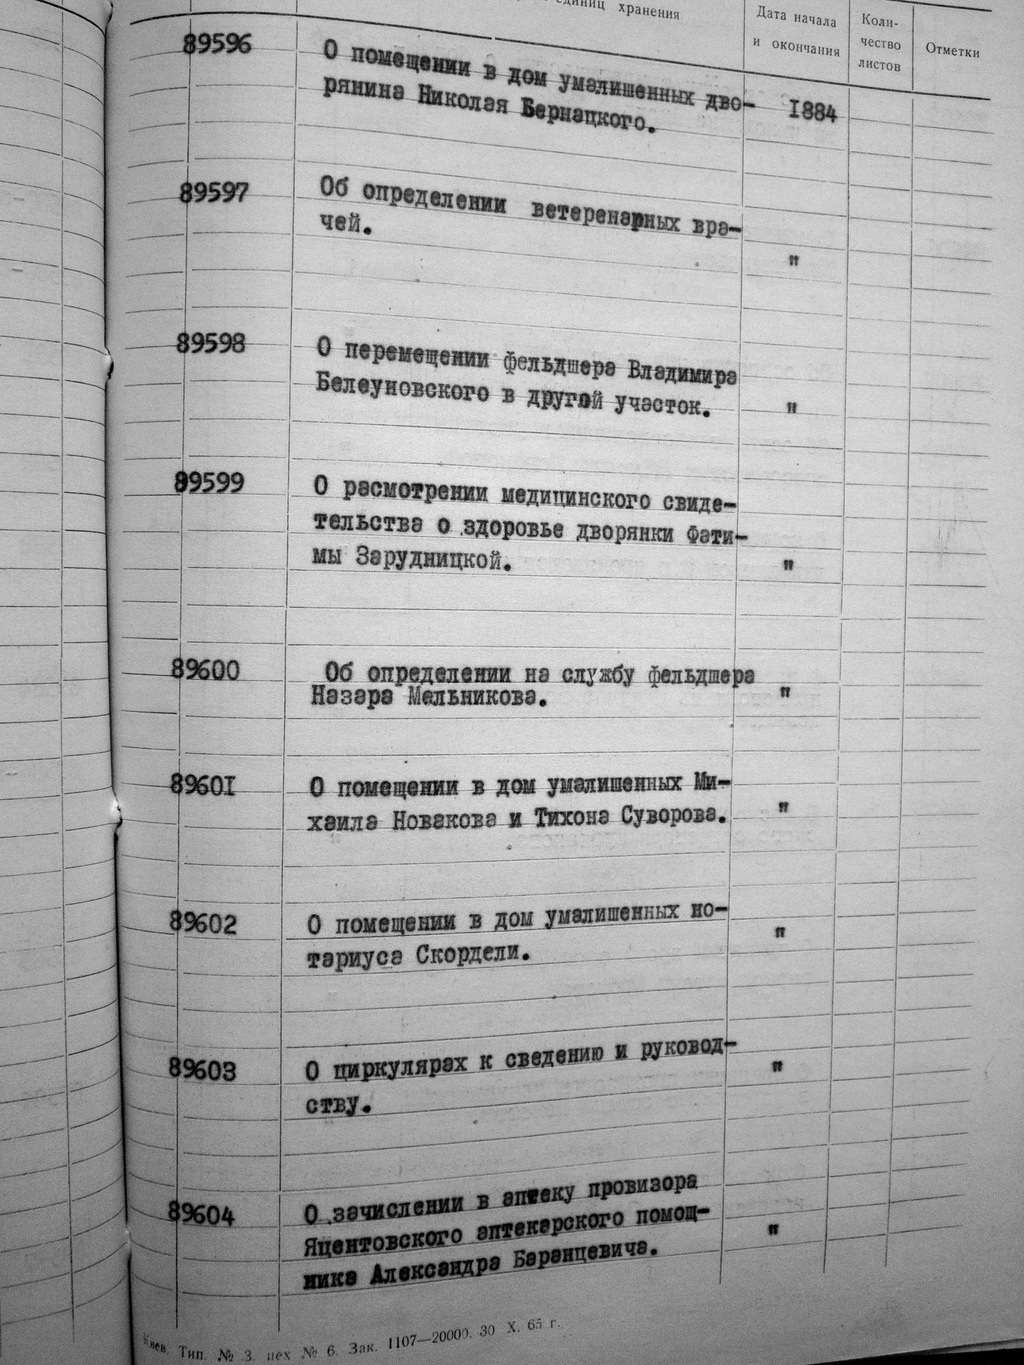 единиц хранения
Дата начала
и окончания
Коли-
чество
листов
Отметки
89596
О помещении в дом умалишенных дво-
рянина Николая Бернацкого.
1884
89597
Об определении ветеренарных вра-
чей.
"
89598
О перемещении фельдшера Владимира
Белеуновского в другой участок.
"
89599
О расмотрении медицинского свиде-
тельства о здоровье дворянки Фати-
мы Зарудницкой.
"
89600
Об определении на службу фельдшера
Назара Мельникова.
"
89601
О помещении в дом умалишенных Ми-
хаила Новакова и Тихона Суворова.
"
89602
О помещении в дом умалишенных но-
тариуса Скордели.
"
89603
О циркулярах к сведению и руковод-
ству.
"
89604
О зачислении в аптеку провизора
Яцентовского аптекарского помощ-
ника Александра Баранцевича.
"
Киев. Тип. № 3. цех № 6. Зак. 1107—20000. 30 X. 65 г.